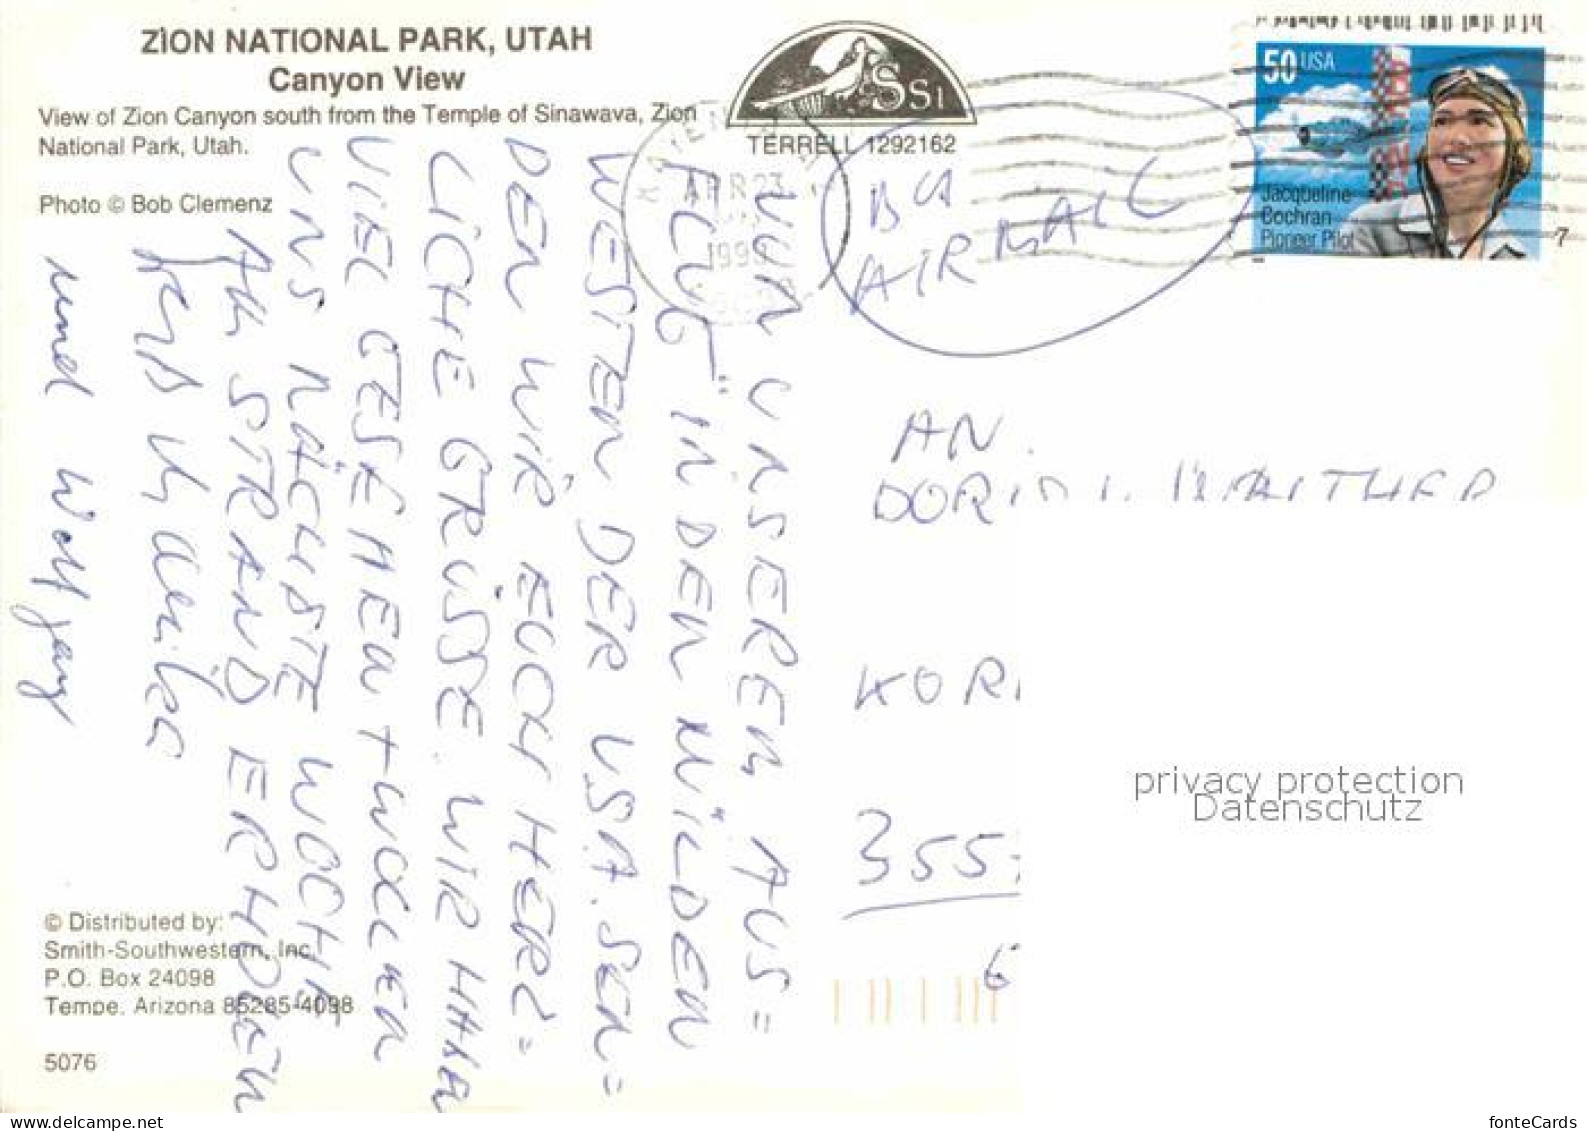 ZION NATIONAL PARK, UTAH
Canyon View
View of Zion Canyon south from the Temple of Sinawava, Zion
National Park, Utah.
Photo © Bob Clemenz
SSI
TERRELL 1292162
APR 23
50 USA
Jacqueline
Cochran
Pioneer Pilot
7
BY
AIRMAIL
VON UNSEREM AUS=
FLUG IN DEN WILDEN
WESTEN DER USA. SEN=
DEN WIR EUCH HERZ=
LICHE GRÜSSE. WIR HABEN
VIEL GESEHEN + WOLLEN
UNS NÄCHSTE WOCHE
AM STRAND ERHOLEN
und Wolfgang
AN
KOR
355
6
© Distributed by:
Smith-Southwestern, Inc.
P.O. Box 24098
Tempe, Arizona 85285-4098
5076
privacy protection
Datenschutz
www.delcampe.net
fonteCards